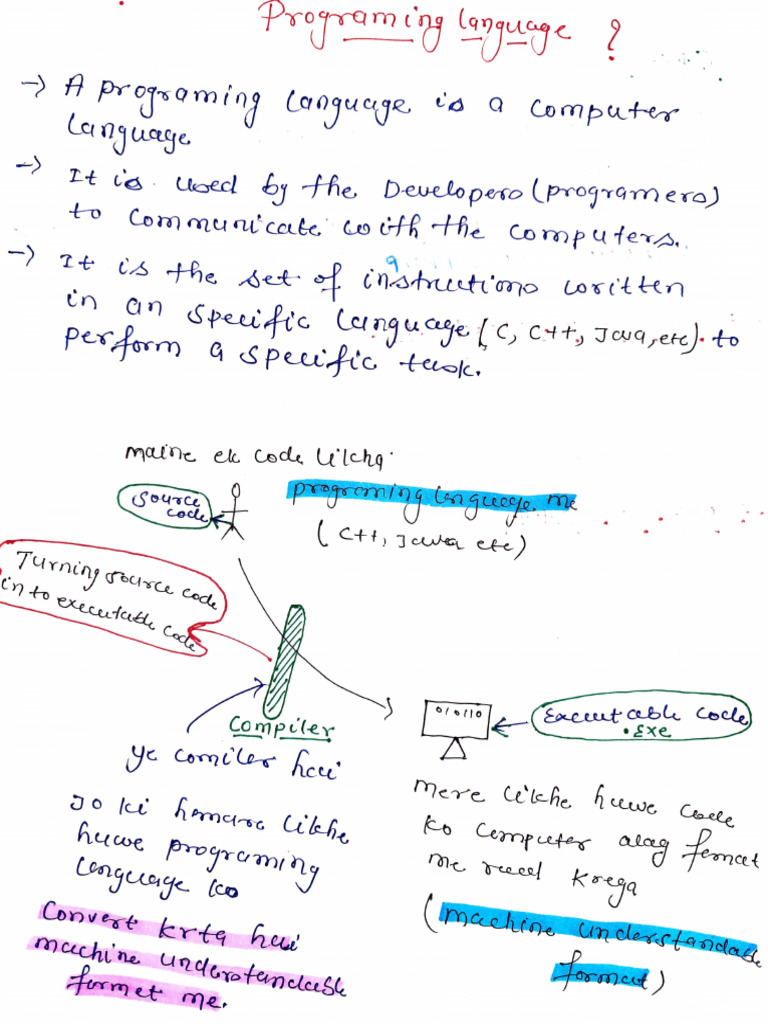 Programing Language ?
→ A programing Language is a computer
Language
→ It is used by the Developers (programers)
to communicate with the computers.
→ It is the set of instructions written
in an specific Language (C, C++, Java, etc). to
perform a specific task.
maine ek code likha
Source
code
programing Language me
(C++, Java etc)
Turning source code
in to executable code
Compiler
ye comiler hai
Jo ki hamare likhe
huwe programing
Language ko
Convert krta hai
machine understandable
format me.
010110
Executable code
.exe
mere likhe huwe code
ko computer alag format
me read krega
(machine understandable
format)